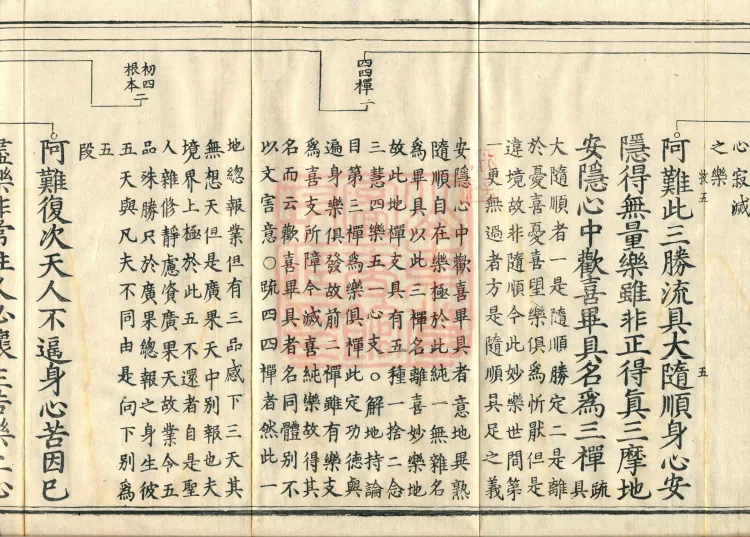 心寂滅
之樂
阿難此三勝流具大隨順身心安
隱得無量樂雖非正得真三摩地
安隱心中歡喜畢具名為三禪疏具
大隨順者一是隨順勝定二是離
於憂喜憂喜望樂俱為忻猒但是
違境故非隨順今此妙樂世間第
一更無過者方是隨順具足之義
安隱心中歡喜畢具者意地異熟
隨順自在樂極於此純一無雜名
為畢具以此三禪名離喜妙樂地
故此地禪支具有五種一捨二念
三慧四樂五一心支○解地持論
目第三禪為樂俱禪此定功德與
遍身樂俱發故前二禪雖有樂支
為喜支所障今滅喜純樂故得其
名而云歡喜畢具者名同體別不
以文害意○疏四四禪者然此一
四四禪二
地總報業但有三品感下三天其
無想天但是廣果天中別報也夫
境界上極於此五不還者自是聖
人雜修靜慮資廣果天故業令五
品殊勝只於廣果總報之身生彼
五天與凡夫不同由是向下別為
五
段
初四二
根本
阿難復次天人不逼身心苦因已